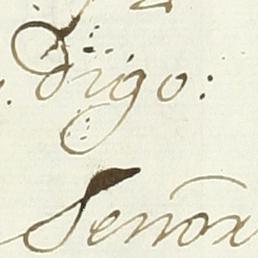 Digo:
Senor